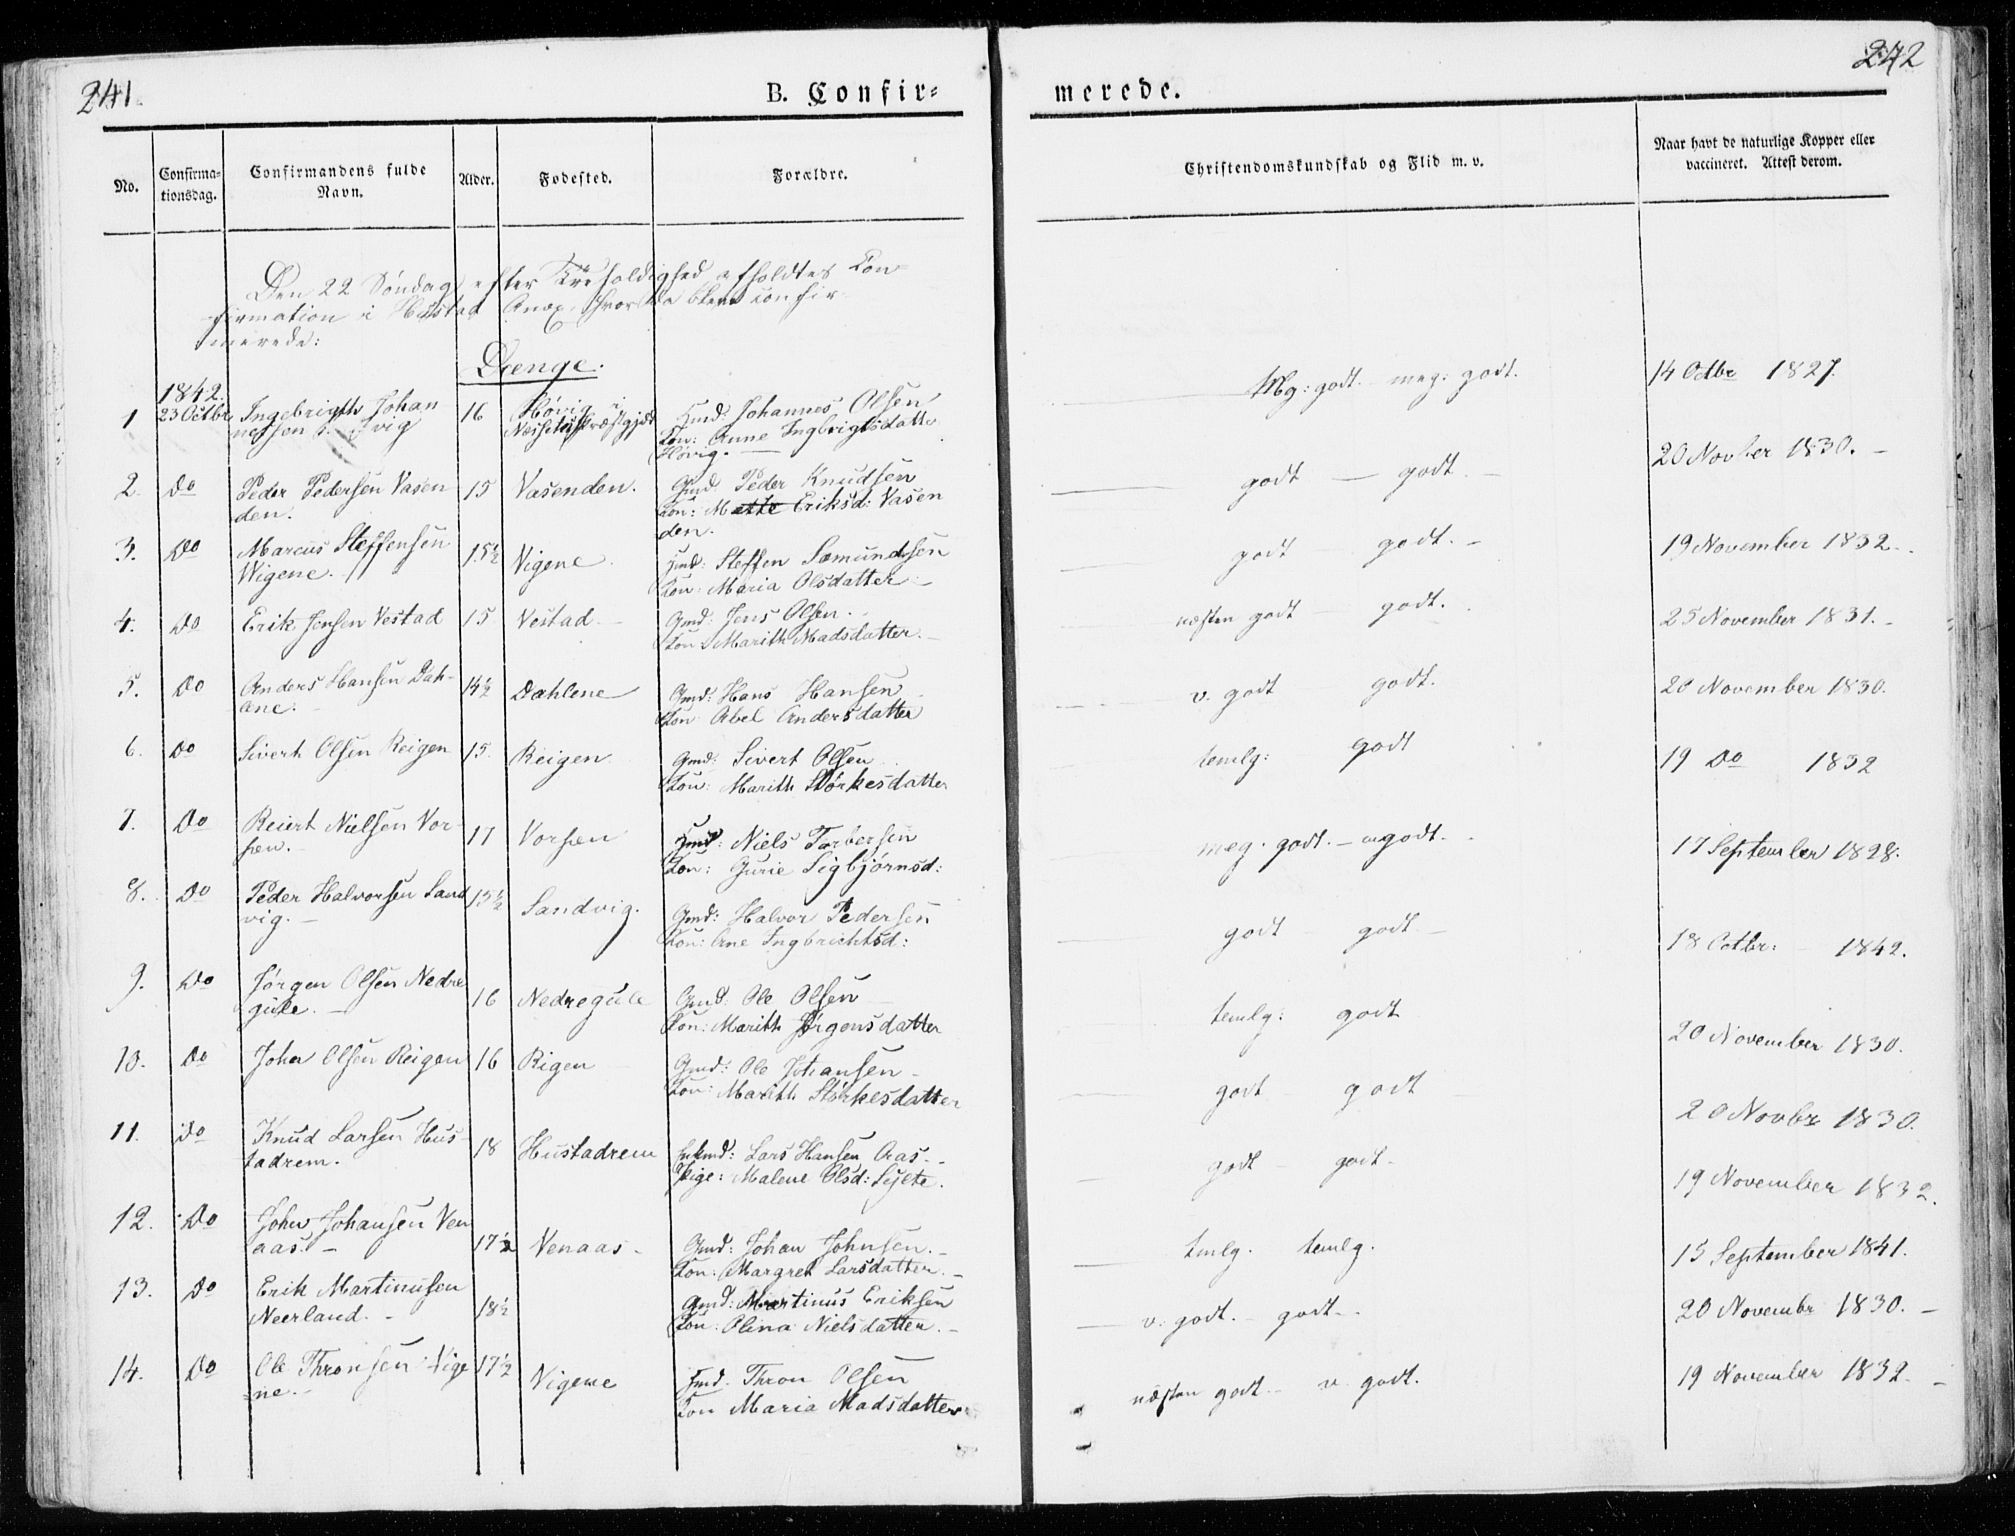 241.
242
B. Confir=
merede.
No.
Confirma-
tionsdag.
Confirmandens fulde
Navn.
Alder.
Fødested.
Forældre.
Christendomskundskab og Flid m. v.
Naar havt de naturlige Kopper eller
vaccineret. Attest derom.
Den 22 Søndag efter Trefoldighed afholdtes Con=
firmation i Hustad Anex, hvor da bleve confir-
merede:
Drenge.
1842.
1 23 Octbr Ingebrigth Johan 16 Høvig i Hmd: Johannes Olsen Mg: godt. - meg: godt. 14 Octbr 1827.
nessen vig Nessets Præstgjæld Kon: Anne Ingbrigtsdatter
Høvig. -
2. Do Peder Pedersen Vasen 15 Vasenden. Gmd Peder Knudsen godt - godt - 20 Novber 1830. -
den. Kon: Mette Eriksd: Vasen
den.
3. Do Marcus Steffensen 15½ Vigene. Hmd: Steffen Samundsen godt godt. - 19 November 1832.
Wigene. Kon: Maria Olsdatter -
4. Do Erik Jensen Vestad 15 Vestad - Gmd: Jens Olsen. næsten godt - godt. 25 November 1831. -
Kon Marith Madsdatter. -
5. Do Anders Hansen Dah- 14½ Dahlene Gmd: Hans Hansen v. godt godt. 20 November 1830.
lene. Kon Abel Andersdatter
6. Do Sivert Olsen Reigen 15 Reigen Gmd: Sivert Olsen temlg: godt 19 Do 1832
Kon: Marith Størkesdatter
7. Do Reiert Nielsen Vor- 17 Vorsen Hmd: Niels Torbersen meg. godt. - m godt. - 17 September 1828.
sen. Kon: Gurie Sigbjørnsd:
8. Do Peder Halvorsen Sand 15½ Sandvig. Gmd: Halvor Pedersen godt - godt - 18 Octbr: 1842.
vig. - Kon: Ane Ingbrichtsd:
9. Do Jørgen Olsen Nedre 16 Nedregule Gmd: Ole Olsen temlg: godt 20 November 1830.
gule. - Kon: Marith Jørgensdatter
10. Do John Olsen Reigen 16 Rigen Gmd: Ole Johansen - godt godt 20 Novbr 1830.
Kon: Marith Størkesdatter
11. Do Knud Larsen Hus- 18 Hustadrem Lars Hansen Aas. - godt - godt - 19 November 1832.
tadrem. Pige: Malene Olsd: Sylte.
12. Do John Johansen Ven 17½ Venaas - Gmd: Johan Johnsen. - temlg. temlg. 15 September 1841.
aas. - Kon: Margret Larsdatter. -
13. Do Erik Martinusen 18½ Gmd: Martinus Eriksen v. godt. - godt - 20 Novembr 1830. -
Neerland. - Kon: Olina Nielsdatter. -
14. Do Ole Thronsen Vige 17½ Vigene Hmd. Thron Olsen næsten godt - v. godt. 19 November 1832. -
ne. - Kon Maria Madsdatter